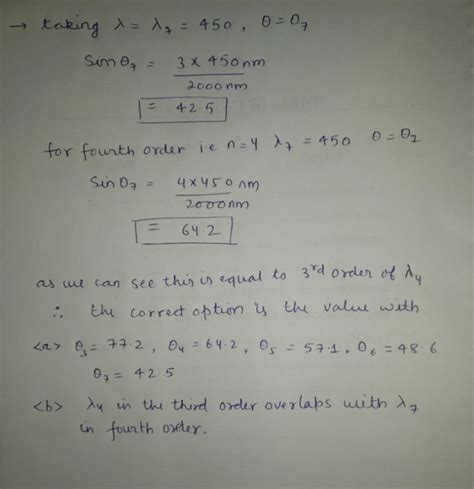 → taking λ = λ₇ = 450, θ = θ₇
Sin θ₇ = 3 × 450nm
2000nm
= 42.5
for fourth order i.e n=4 λ₇ = 450 θ = θ₇
Sin θ₇ = 4×450 nm
2000nm
= 64.2
as we can see this is equal to 3rd order of λ₄
∴ the correct option is the value with
<a> θ₃ = 77.2, θ₄ = 64.2, θ₅ = 57.1, θ₆ = 48.6
θ₇ = 42.5
<b> λ₄ in the third order overlaps with λ₇
in fourth order.